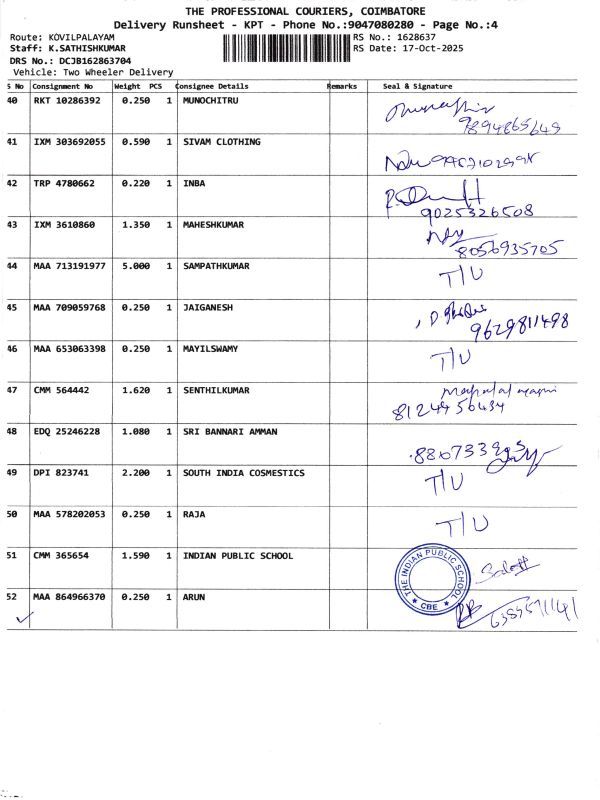 THE PROFESSIONAL COURIERS, COIMBATORE
Delivery Runsheet - KPT - Phone No.:9047080280 - Page No.:4
Route: KOVILPALAYAM RS No.: 1628637
Staff: K.SATHISHKUMAR RS Date: 17-Oct-2025
DRS No.: DCJB162863704
Vehicle: Two Wheeler Delivery
S No Consignment No Weight PCS Consignee Details Remarks Seal & Signature
40 RKT 10286392 0.250 1 MUNOCHITRU
9894865649
41 IXM 303692055 0.590 1 SIVAM CLOTHING
42 TRP 4780662 0.220 1 INBA
9025326508
43 IXM 3610860 1.350 1 MAHESHKUMAR
8056935705
44 MAA 713191977 5.000 1 SAMPATHKUMAR T/U
45 MAA 709059768 0.250 1 JAIGANESH
9629811498
46 MAA 653063398 0.250 1 MAYILSWAMY T/U
47 CMM 564442 1.620 1 SENTHILKUMAR
8124456434
48 EDQ 25246228 1.080 1 SRI BANNARI AMMAN
49 DPI 823741 2.200 1 SOUTH INDIA COSMESTICS T/U
50 MAA 578202053 0.250 1 RAJA T/U
51 CMM 365654 1.590 1 INDIAN PUBLIC SCHOOL
THE INDIAN PUBLIC SCHOOL
* CBE *
52 MAA 864966370 0.250 1 ARUN